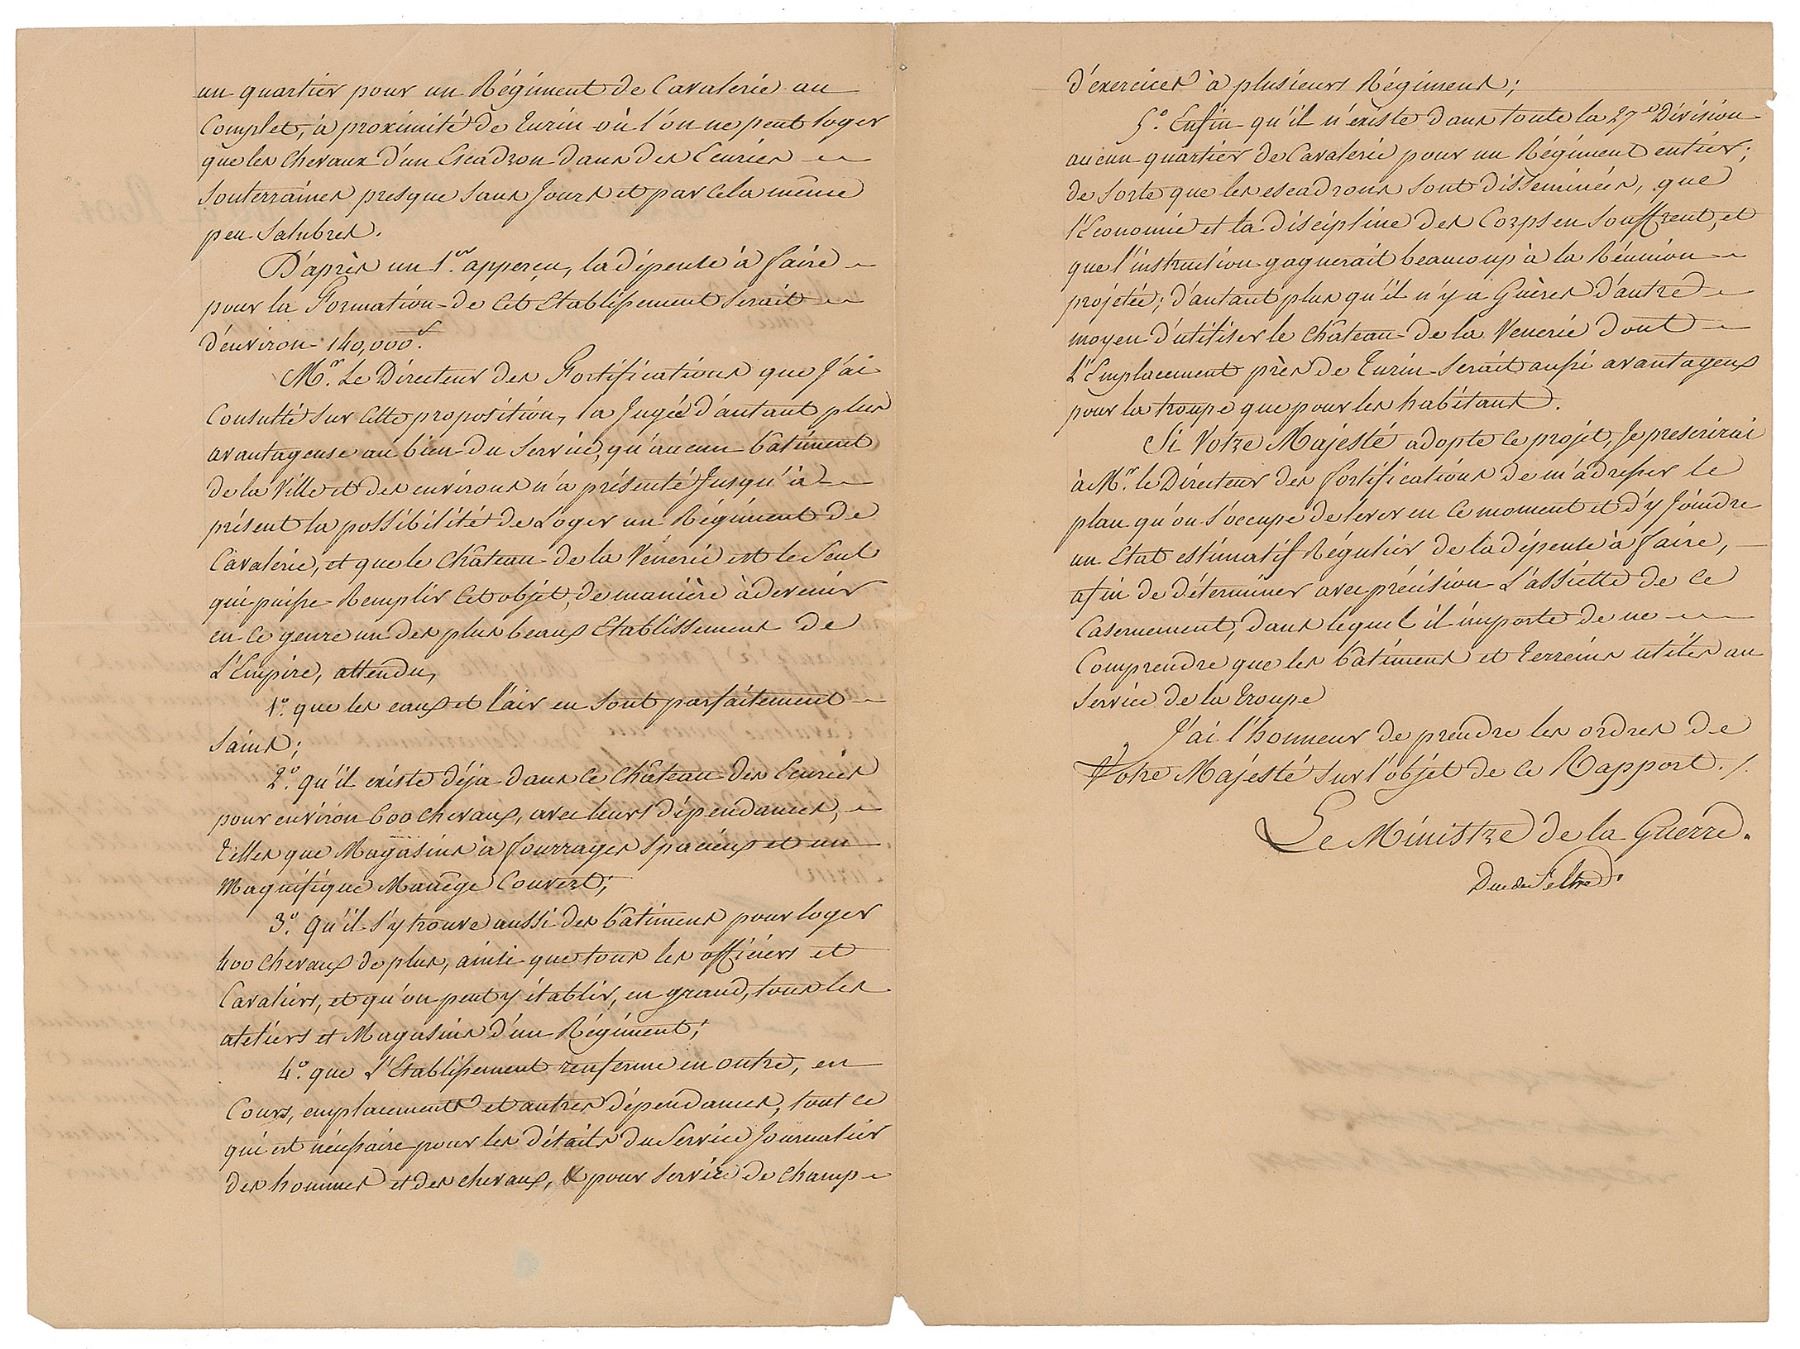 un quartier pour un Régiment de Cavalerie au
Complet, à proximité de Turin où l'on ne peut loger
que les Chevaux d'un Escadron dans des Ecuries
Souterraines presque sans Jours et par cela même
peu Salubres.
D'après un 1er. apperçu, la dépense à faire
pour la Formation de cet Etablissement serait
d'environ 140,000f.
Mr. Le Directeur des Fortifications que J'ai
Consulté sur cette proposition, la Jugée d'autant plus
avantageuse au bien du Service, qu'aucun batiment
de la Ville et des environs n'a présenté Jusqu'à
présent la possibilité de Loger un Régiment de
Cavalerie, et que le Château de la Vénerie est le Seul
qui puisse Remplir cet objet, de manière à devenir
en ce genre un des plus beaux Etablissements de
L'Empire, attendu,
1o. que les eaux et l'air en sont parfaitement
Sains;
2o. qu'il existe déja dans ce Château des Ecuries
pour environ 600 chevaux, avec leurs dépendances,
telles que Magasins à fourrages spacieux et un
Magnifique Manège Couvert;
3o. Qu'il s'y trouve aussi des bâtimens pour loger
400 chevaux de plus, ainsi que tous les officiers et
Cavaliers, et qu'on peut y établir, en grand, tous les
ateliers et Magasins d'un Régiment;
4o. que L'Etablissement renferme en outre, en
Cours, emplacements et autres dépendances, tout ce
qui est nécessaire pour les détails du Service Journalier
des hommes et des chevaux, & pour servir de champ
d'exercices à plusieurs Régimens;
5o. Enfin qu'il n'existe dans toute la 27e Division
aucun quartier de Cavalerie pour un Régiment entier;
de sorte que les escadrons sont disséminés, que
l'Economie et la discipline des Corps en souffrent, et
que l'instruction gagnerait beaucoup à la Réunion
projetée; d'autant plus qu'il n'y a Guères d'autre
moyen d'utiliser le Château de la Venerie dont
L'Emplacement près de Turin serait aussi avantageux
pour la troupe que pour les habitans.
Si Votre Majesté adopte ce projet, Je prescrirai
à Mr. le Directeur des fortifications de m'adresser le
plan qu'on s'occupe de lever en ce moment et d'y Joindre
un Etat estimatif Régulier de la dépense à faire,
afin de déterminer avec précision L'assiette de ce
Casernement, dans lequel il importe de ne
Comprendre que les bâtimens et terreins utiles au
Service de la Troupe
J'ai l'honneur de prendre les ordres de
Votre Majesté sur l'objet de ce Rapport. /.
Le Ministre de la Guerre.
Duc de Feltre